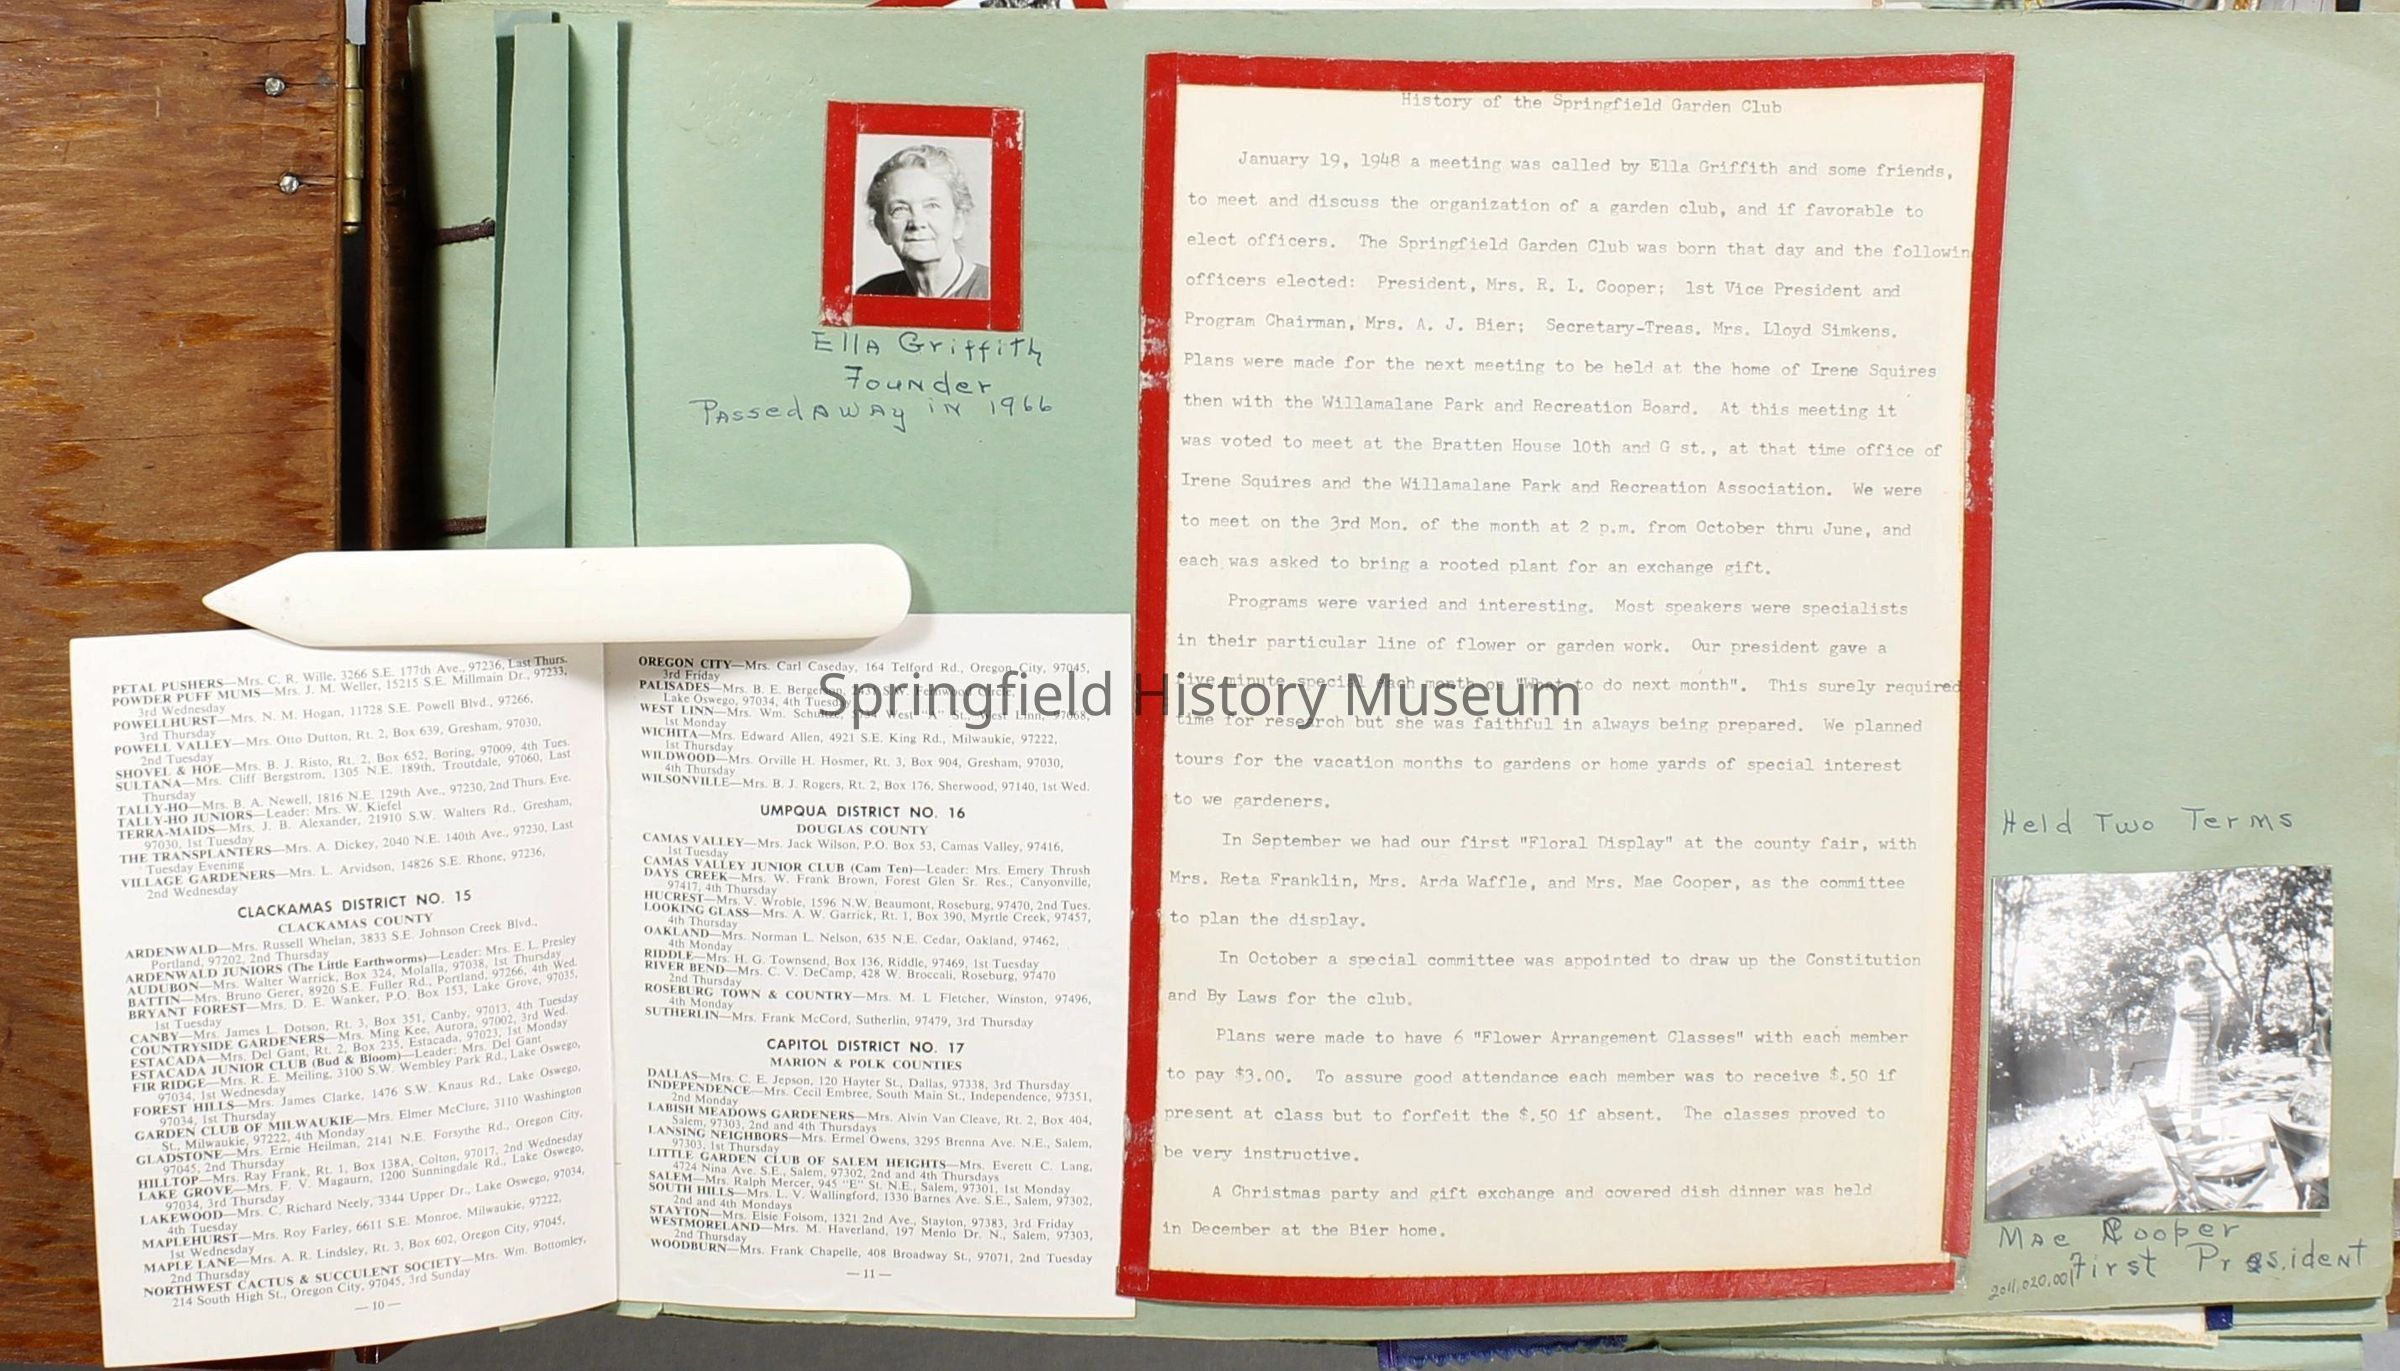 Ella Griffith
Founder
Passed Away in 1966
History of the Springfield Garden Club
January 19, 1948 a meeting was called by Ella Griffith and some friends,
to meet and discuss the organization of a garden club, and if favorable to
elect officers. The Springfield Garden Club was born that day and the followin
officers elected: President, Mrs. R. L. Cooper; 1st Vice President and
Program Chairman, Mrs. A. J. Bier; Secretary-Treas. Mrs. Lloyd Simkens.
Plans were made for the next meeting to be held at the home of Irene Squires
then with the Willamalane Park and Recreation Board. At this meeting it
was voted to meet at the Bratten House 10th and G st., at that time office of
Irene Squires and the Willamalane Park and Recreation Association. We were
to meet on the 3rd Mon. of the month at 2 p.m. from October thru June, and
each was asked to bring a rooted plant for an exchange gift.
Programs were varied and interesting. Most speakers were specialists
in their particular line of flower or garden work. Our president gave a
five minute special each month on "What to do next month". This surely required
time for research but she was faithful in always being prepared. We planned
tours for the vacation months to gardens or home yards of special interest
to we gardeners.
In September we had our first "Floral Display" at the county fair, with
Mrs. Reta Franklin, Mrs. Arda Waffle, and Mrs. Mae Cooper, as the committee
to plan the display.
In October a special committee was appointed to draw up the Constitution
and By Laws for the club.
Plans were made to have 6 "Flower Arrangement Classes" with each member
to pay $3.00. To assure good attendance each member was to receive $.50 if
present at class but to forfeit the $.50 if absent. The classes proved to
be very instructive.
A Christmas party and gift exchange and covered dish dinner was held
in December at the Bier home.
Held Two Terms
Mae Cooper
First President
2011.020.001
PETAL PUSHERS—Mrs. C. R. Wille, 3266 S.E. 177th Ave., 97236, Last Thurs.
POWDER PUFF MUMS—Mrs. J. M. Weller, 15215 S.E. Millmain Dr., 97233,
3rd Wednesday
POWELLHURST—Mrs. N. M. Hogan, 11728 S.E. Powell Blvd., 97266,
3rd Thursday
POWELL VALLEY—Mrs. Otto Dutton, Rt. 2, Box 639, Gresham, 97030,
2nd Tuesday
SHOVEL & HOE—Mrs. B. J. Risto, Rt. 2, Box 652, Boring, 97009, 4th Tues.
SULTANA—Mrs. Cliff Bergstrom, 1305 N.E. 189th, Troutdale, 97060, Last
Thursday
TALLY-HO—Mrs. B. A. Newell, 1816 N.E. 129th Ave., 97230, 2nd Thurs. Eve.
TALLY-HO JUNIORS—Leader: Mrs. W. Kiefel
TERRA-MAIDS—Mrs. J. B. Alexander, 21910 S.W. Walters Rd., Gresham,
97030, 1st Tuesday
THE TRANSPLANTERS—Mrs. A. Dickey, 2040 N.E. 140th Ave., 97230, Last
Tuesday Evening
VILLAGE GARDENERS—Mrs. L. Arvidson, 14826 S.E. Rhone, 97236,
2nd Wednesday
CLACKAMAS DISTRICT NO. 15
CLACKAMAS COUNTY
ARDENWALD—Mrs. Russell Whelan, 3833 S.E. Johnson Creek Blvd.,
Portland, 97202, 2nd Thursday
ARDENWALD JUNIORS (The Little Earthworms)—Leader: Mrs. E. L. Presley
AUDUBON—Mrs. Walter Warrick, Box 324, Molalla, 97038, 1st Thursday
BATTIN—Mrs. Bruno Gerer, 8920 S.E. Fuller Rd., Portland, 97266, 4th Wed.
BRYANT FOREST—Mrs. D. E. Wanker, P.O. Box 153, Lake Grove, 97035,
1st Tuesday
CANBY—Mrs. James L. Dotson, Rt. 3, Box 351, Canby, 97013, 4th Tuesday
COUNTRYSIDE GARDENERS—Mrs. Ming Kee, Aurora, 97002, 3rd Wed.
ESTACADA—Mrs. Del Gant, Rt. 2, Box 235, Estacada, 97023, 1st Monday
ESTACADA JUNIOR CLUB (Bud & Bloom)—Leader: Mrs. Del Gant
FIR RIDGE—Mrs. R. E. Meiling, 3100 S.W. Wembley Park Rd., Lake Oswego,
97034, 1st Wednesday
FOREST HILLS—Mrs. James Clarke, 1476 S.W. Knaus Rd., Lake Oswego,
97034, 1st Thursday
GARDEN CLUB OF MILWAUKIE—Mrs. Elmer McClure, 3110 Washington
St., Milwaukie, 97222, 4th Monday
GLADSTONE—Mrs. Ernie Heilman, 2141 N.E. Forsythe Rd., Oregon City,
97045, 2nd Thursday
HILLTOP—Mrs. Ray Frank, Rt. 1, Box 138A, Colton, 97017, 2nd Wednesday
LAKE GROVE—Mrs. F. V. Magaurn, 1200 Sunningdale Rd., Lake Oswego,
97034, 3rd Thursday
LAKEWOOD—Mrs. C. Richard Neely, 3344 Upper Dr., Lake Oswego, 97034,
4th Tuesday
MAPLEHURST—Mrs. Roy Farley, 6611 S.E. Monroe, Milwaukie, 97222,
1st Wednesday
MAPLE LANE—Mrs. A. R. Lindsley, Rt. 3, Box 602, Oregon City, 97045,
2nd Thursday
NORTHWEST CACTUS & SUCCULENT SOCIETY—Mrs. Wm. Bottomley,
214 South High St., Oregon City, 97045, 3rd Sunday
—10—
OREGON CITY—Mrs. Carl Caseday, 164 Telford Rd., Oregon City, 97045,
3rd Friday
PALISADES—Mrs. B. E. Bergerson, S.W. Fernwood Circle,
Lake Oswego, 97034, 4th Tuesday
WEST LINN—Mrs. Wm. Schultze, West "A" St., West Linn, 97068,
1st Monday
WICHITA—Mrs. Edward Allen, 4921 S.E. King Rd., Milwaukie, 97222,
1st Thursday
WILDWOOD—Mrs. Orville H. Hosmer, Rt. 3, Box 904, Gresham, 97030,
4th Thursday
WILSONVILLE—Mrs. B. J. Rogers, Rt. 2, Box 176, Sherwood, 97140, 1st Wed.
UMPQUA DISTRICT NO. 16
DOUGLAS COUNTY
CAMAS VALLEY—Mrs. Jack Wilson, P.O. Box 53, Camas Valley, 97416,
1st Tuesday
CAMAS VALLEY JUNIOR CLUB (Cam Ten)—Leader: Mrs. Emery Thrush
DAYS CREEK—Mrs. W. Frank Brown, Forest Glen Sr. Res., Canyonville,
97417, 4th Thursday
HUCREST—Mrs. V. Wroble, 1596 N.W. Beaumont, Roseburg, 97470, 2nd Tues.
LOOKING GLASS—Mrs. A. W. Garrick, Rt. 1, Box 390, Myrtle Creek, 97457,
4th Thursday
OAKLAND—Mrs. Norman L. Nelson, 635 N.E. Cedar, Oakland, 97462,
4th Monday
RIDDLE—Mrs. H. G. Townsend, Box 136, Riddle, 97469, 1st Tuesday
RIVER BEND—Mrs. C. V. DeCamp, 428 W. Broccali, Roseburg, 97470
2nd Thursday
ROSEBURG TOWN & COUNTRY—Mrs. M. L Fletcher, Winston, 97496,
4th Monday
SUTHERLIN—Mrs. Frank McCord, Sutherlin, 97479, 3rd Thursday
CAPITOL DISTRICT NO. 17
MARION & POLK COUNTIES
DALLAS—Mrs. C. E. Jepson, 120 Hayter St., Dallas, 97338, 3rd Thursday
INDEPENDENCE—Mrs. Cecil Embree, South Main St., Independence, 97351,
2nd Monday
LABISH MEADOWS GARDENERS—Mrs. Alvin Van Cleave, Rt. 2, Box 404,
Salem, 97303, 2nd and 4th Thursdays
LANSING NEIGHBORS—Mrs. Ermel Owens, 3295 Brenna Ave. N.E., Salem,
97303, 1st Thursday
LITTLE GARDEN CLUB OF SALEM HEIGHTS—Mrs. Everett C. Lang,
4724 Nina Ave. S.E., Salem, 97302, 2nd and 4th Thursdays
SALEM—Mrs. Ralph Mercer, 945 "E" St. N.E., Salem, 97301, 1st Monday
SOUTH HILLS—Mrs. L. V. Wallingford, 1330 Barnes Ave. S.E., Salem, 97302,
2nd and 4th Mondays
STAYTON—Mrs. Elsie Folsom, 1321 2nd Ave., Stayton, 97383, 3rd Friday
WESTMORELAND—Mrs. M. Haverland, 197 Menlo Dr. N., Salem, 97303,
2nd Thursday
WOODBURN—Mrs. Frank Chapelle, 408 Broadway St., 97071, 2nd Tuesday
—11—
Springfield History Museum